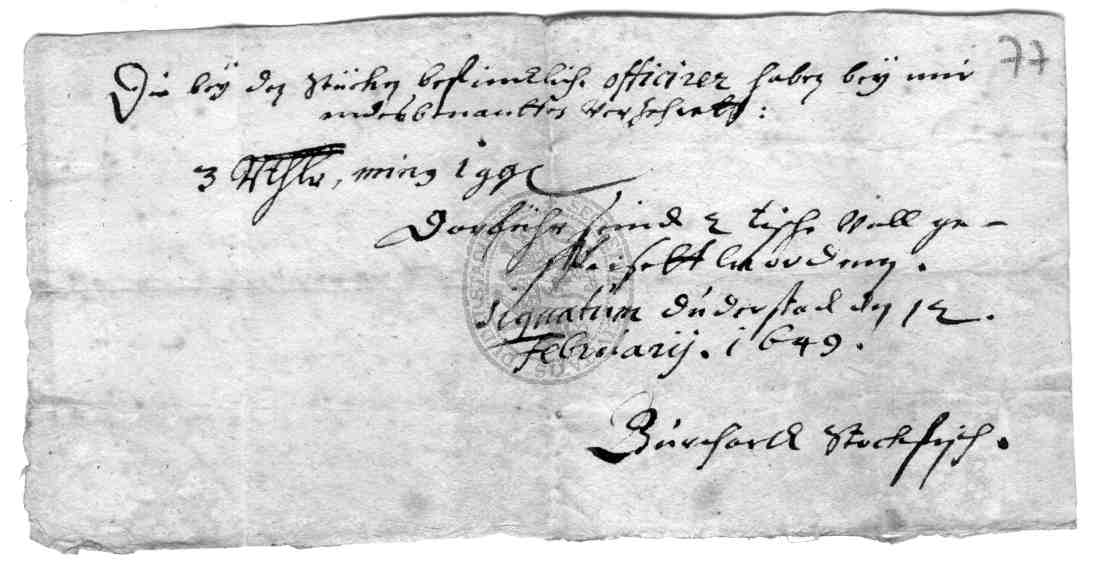 77
Die bey den Stücken befindtliche officirer haben bey mir
endesbenanten verzehrett:
3 Rthlr, ming 1 ggr
Dorführ seind 2 tische voll ge-
speisett worden.
Signatum Duderstad den 12.
Februarij. 1649.
Burchardt Stockfisch.